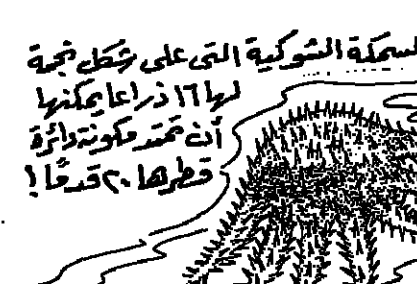 السمكة الشوكية التى على شكل نجمة
لها ١٦ ذراعا يمكنها
أن تمتد مكونة دائرة
قطرها ٢٠ قدمًا !